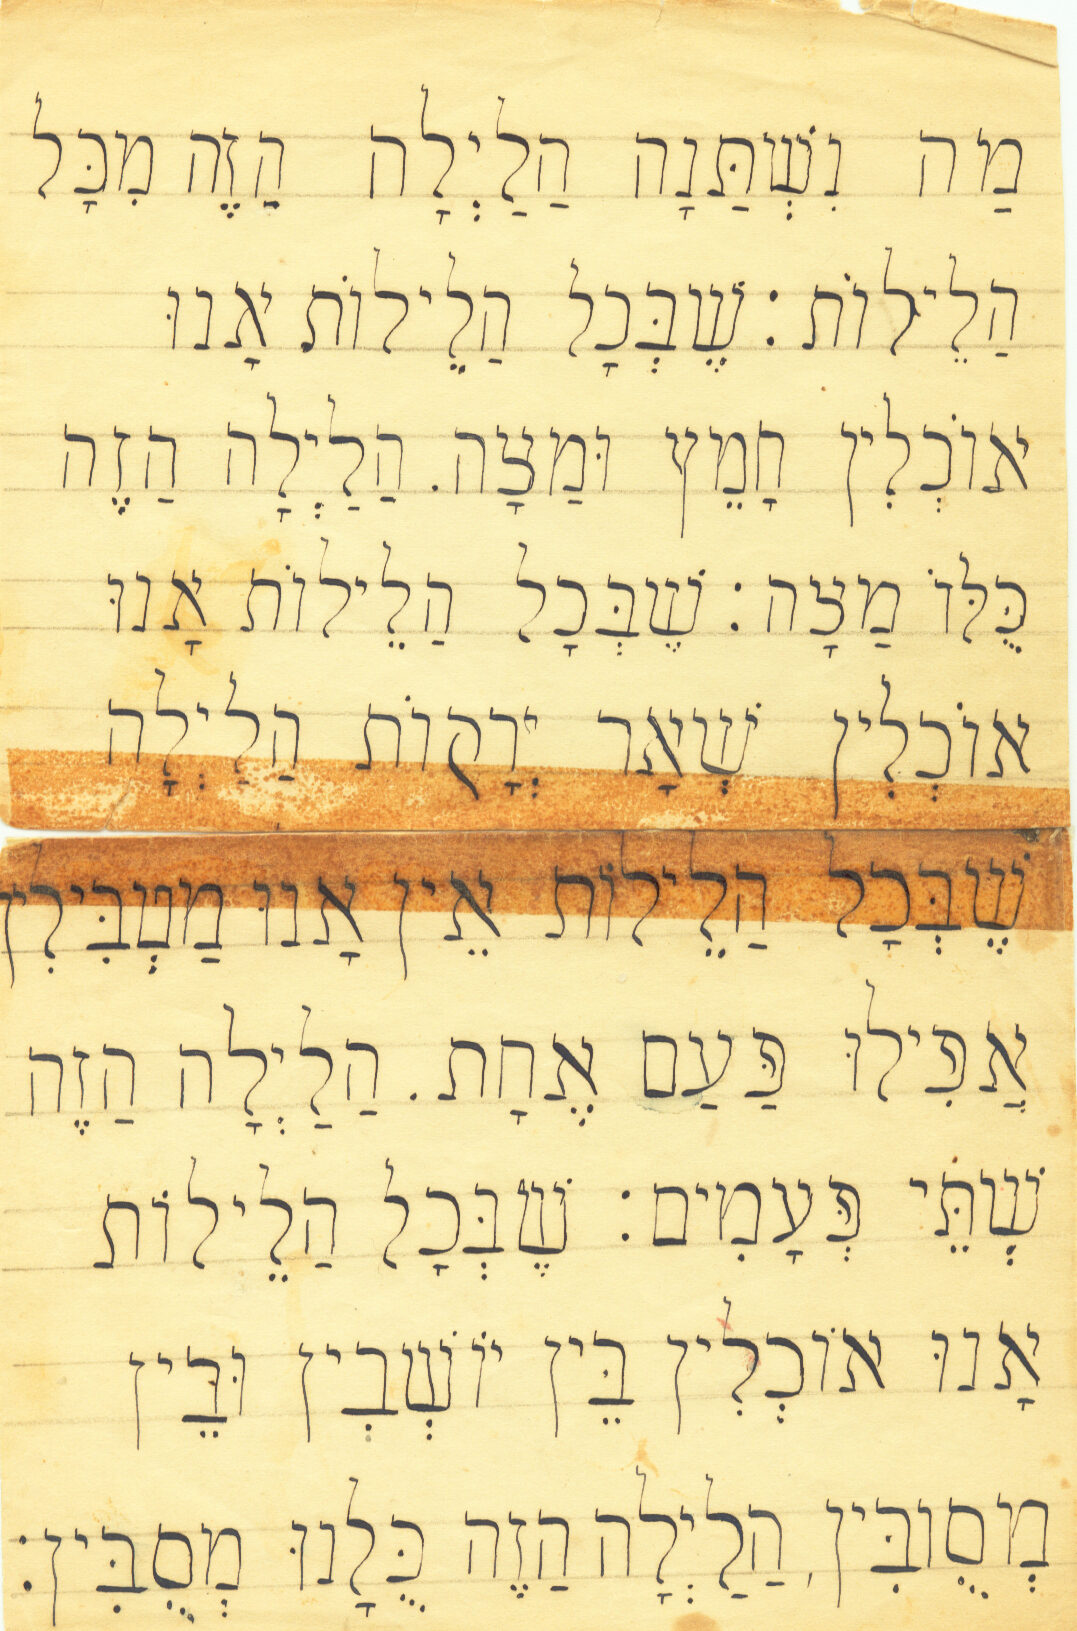 מַה נִשְׁתַּנָה הַלַיְלָה הַזֶה מִכָּל
הַלֵילוֹת : שֶׁבְּכָל הַלֵילוֹת אָנוּ
אוֹכְלִין חָמֵץ וּמַצָה. הַלַיְלָה הַזֶה
כֻּלּוֹ מַצָה : שֶׁבְּכָל הַלֵילוֹת אָנוּ
אוֹכְלִין שְׁאָר יְרָקוֹת הַלַיְלָה
שֶׁבְּכָל הַלֵילוֹת אֵין אָנוּ מַטְבִּילִין
אֲפִּילוּ פַּעַם אֶחָת. הַלַיְלָה הַזֶה
שְׁתֵּי פְּעָמִים : שֶׁבְּכָל הַלֵילוֹת
אָנוּ אוֹכְלִין בֵּין יוֹשְׁבְין וּבֵּין
מְסֻוּבִּין, הַלַיְלָה הַזֶה כֻּלָנוּ מְסֻבִּין :